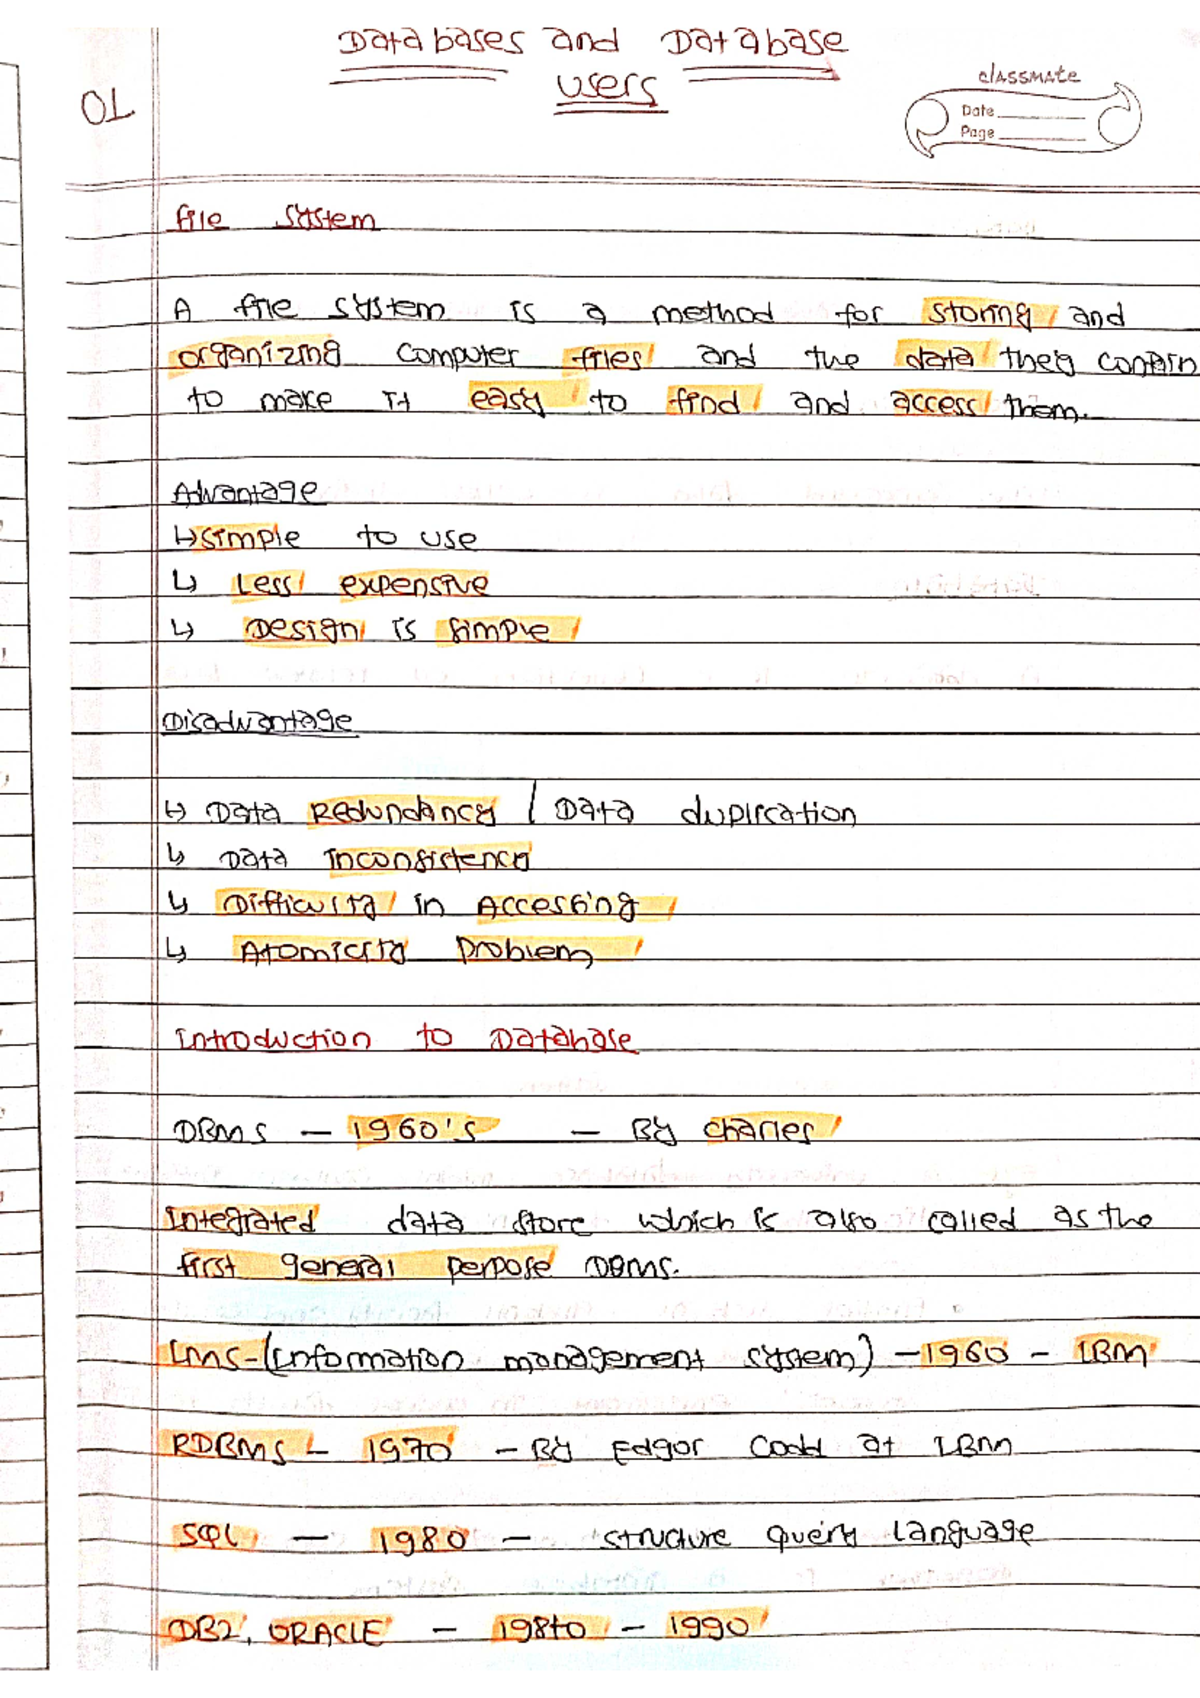 Databases and Database
users
01
classmate
Date
Page
File System
A file system is a method for storing and
organizing computer files and the data they contain
to make it easy to find and access them.
Advantage
↳ simple to use
↳ Less expensive
↳ Design is simple
Disadvantage
↳ Data Redundancy / Data duplication
↳ Data Inconsistency
↳ Difficulty in Accessing
↳ Atomicity Problem
Introduction to Database
DBMS – 1960's – By Charles
Integrated data store which is also called as the
first general perpose DBMS.
IMS-(Information management system) – 1960 – IBM
RDBMS – 1970 – By Edgor Codd at IBM
SQL – 1980 – structure query Language
DB2, ORACLE – 1980 – 1990